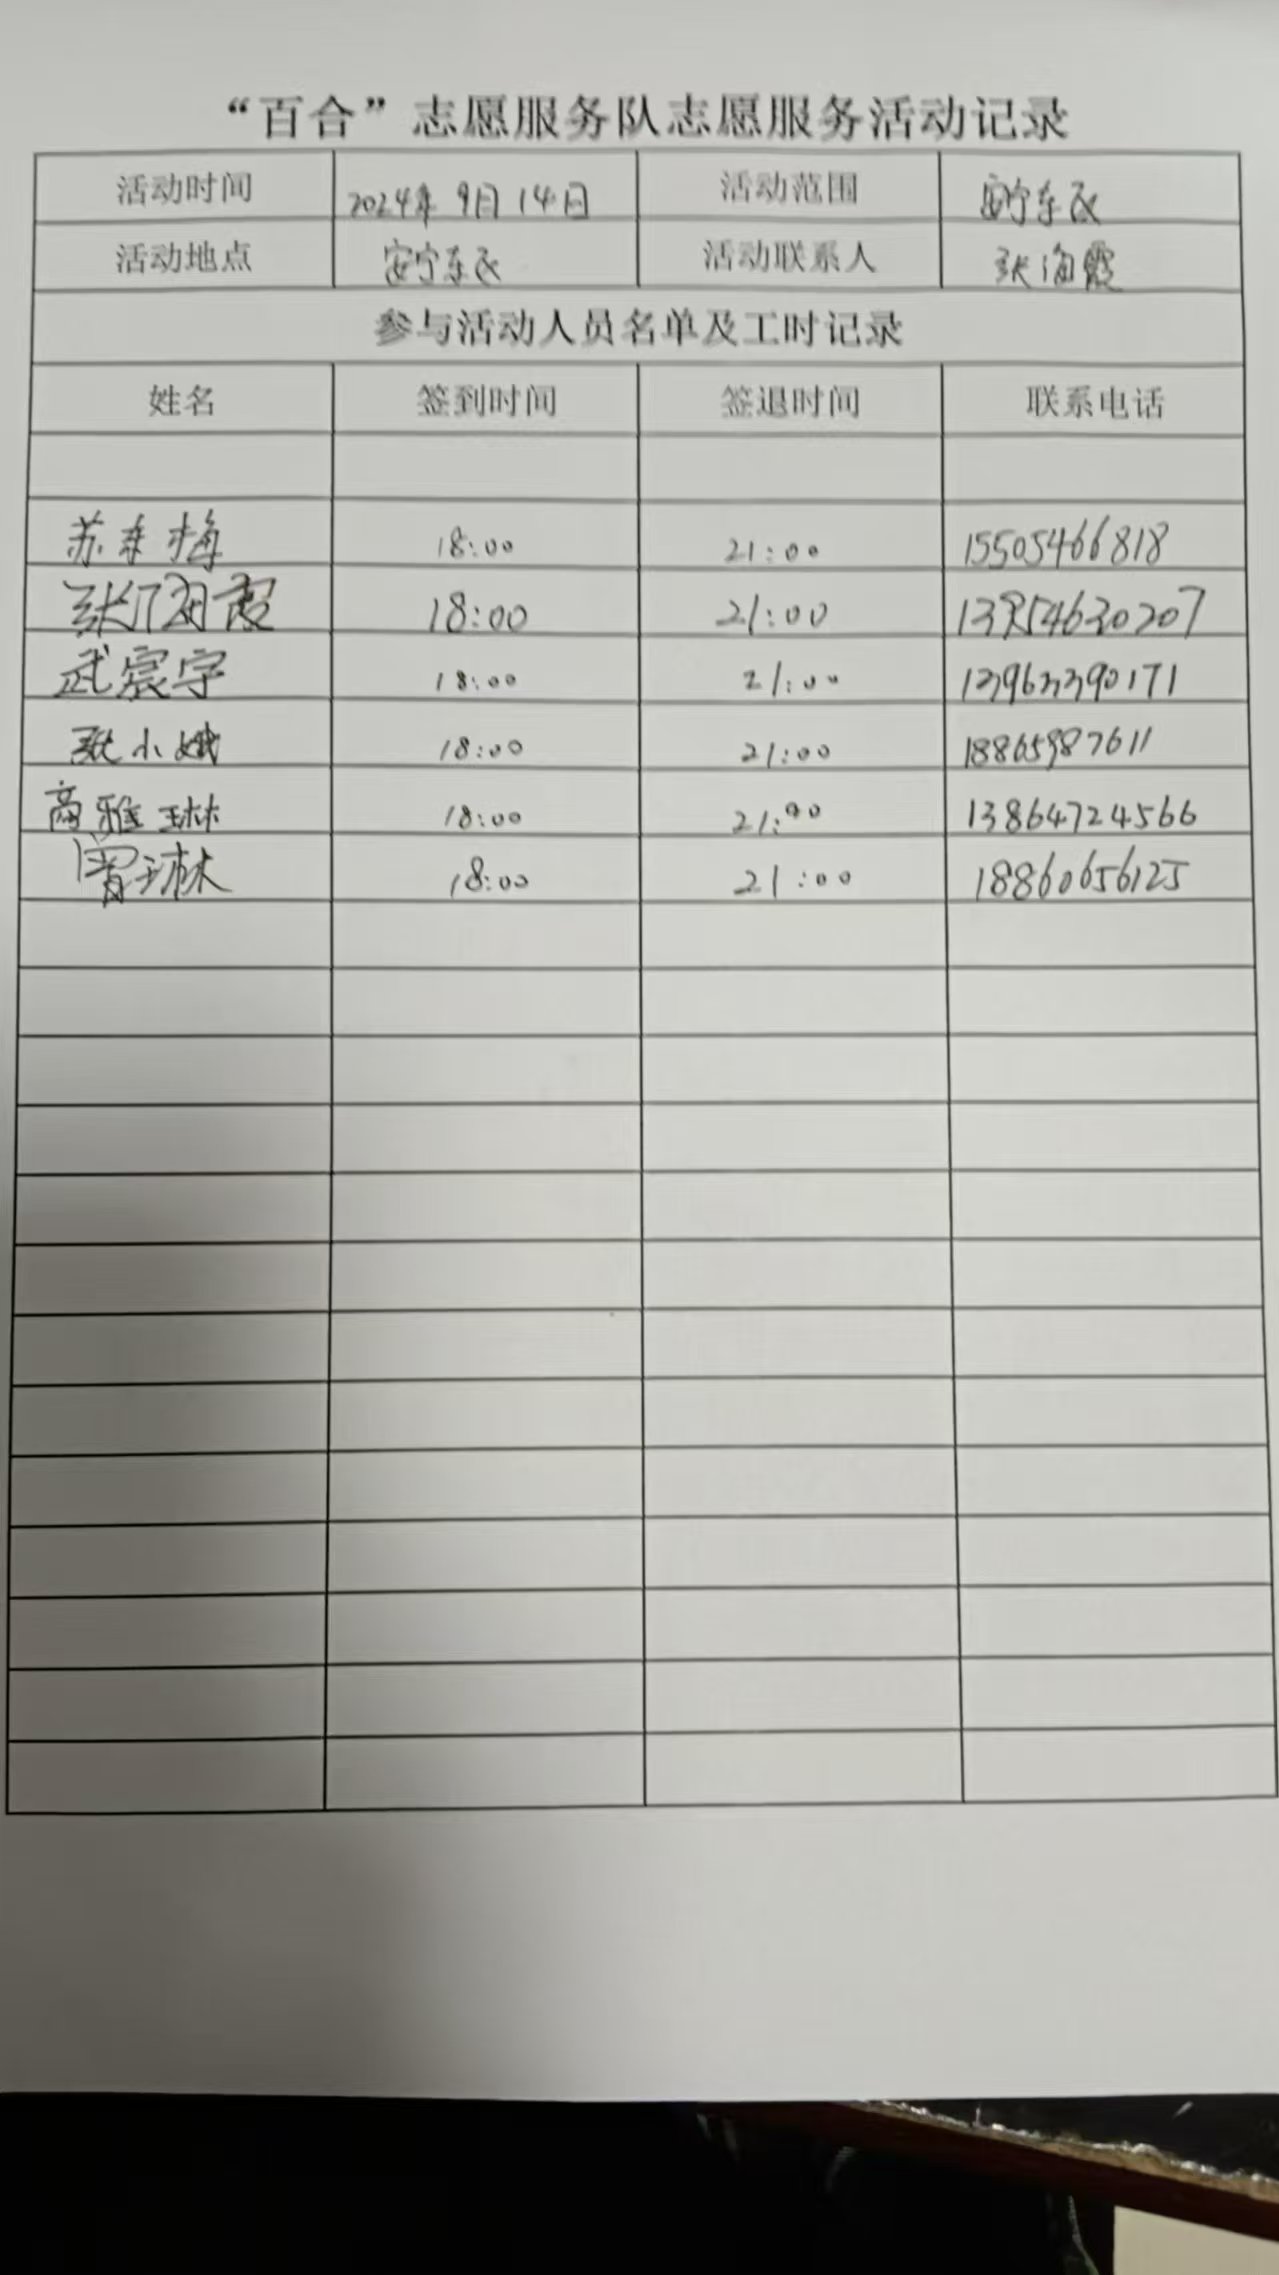 “百合”志愿服务队志愿服务活动记录
活动时间 2024年 9日 14日 活动范围 安宁东区
活动地点 安宁东区 活动联系人 张海霞
参与活动人员名单及工时记录
姓名 签到时间 签退时间 联系电话
苏 梅 18:00 21:00 15505466818
张海霞 18:00 21:00 13954630207
武宸宇 18:00 21:00 13963390171
张小娥 18:00 21:00 18865987611
高雅琳 18:00 21:00 13864724566
曾琳 18:00 21:00 18860656125